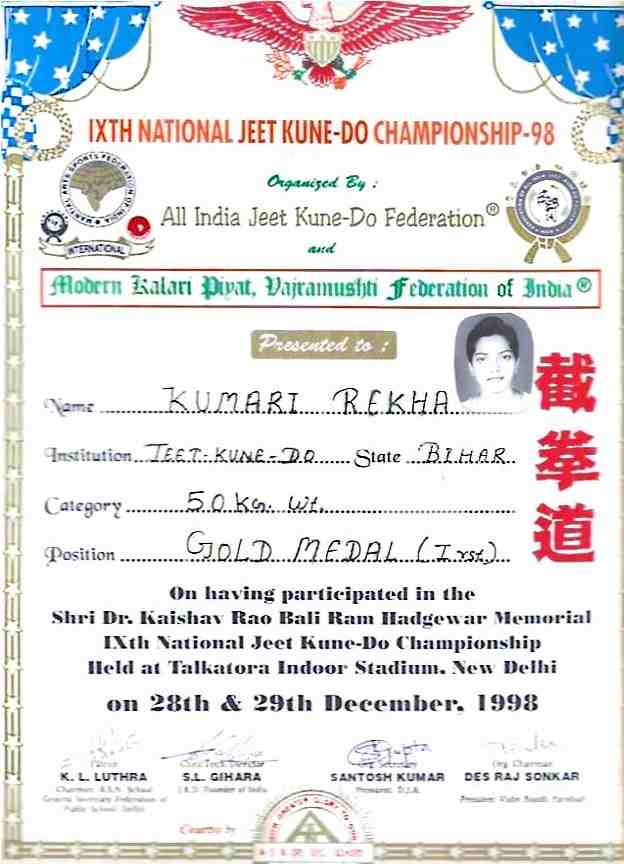 IXTH NATIONAL JEET KUNE-DO CHAMPIONSHIP-98
Organized By :
MARTIAL ARTS SPORTS FEDERATION OF INDIA
INTERNATIONAL
All India Jeet Kune-Do Federation®
and
Modern Kalari Piyat, Vajramushti Federation of India®
Presented to :
Name KUMARI REKHA
Institution JEET-KUNE-DO State BIHAR
Category 50 KG. Wt.
Position GOLD MEDAL (Irst.)
截拳道
On having participated in the
Shri Dr. Kaishav Rao Bali Ram Hadgewar Memorial
IXth National Jeet Kune-Do Championship
Held at Talkatora Indoor Stadium, New Delhi
on 28th & 29th December, 1998
Patron
K. L. LUTHRA
Chairman A.S.N. School
General Secretary Federation of
Public School Delhi
Director
S.L. GIHARA
J.K.D. Founder of India
Org Secretary
SANTOSH KUMAR
President D.J.A.
Org Chairman
DES RAJ SONKAR
President
by